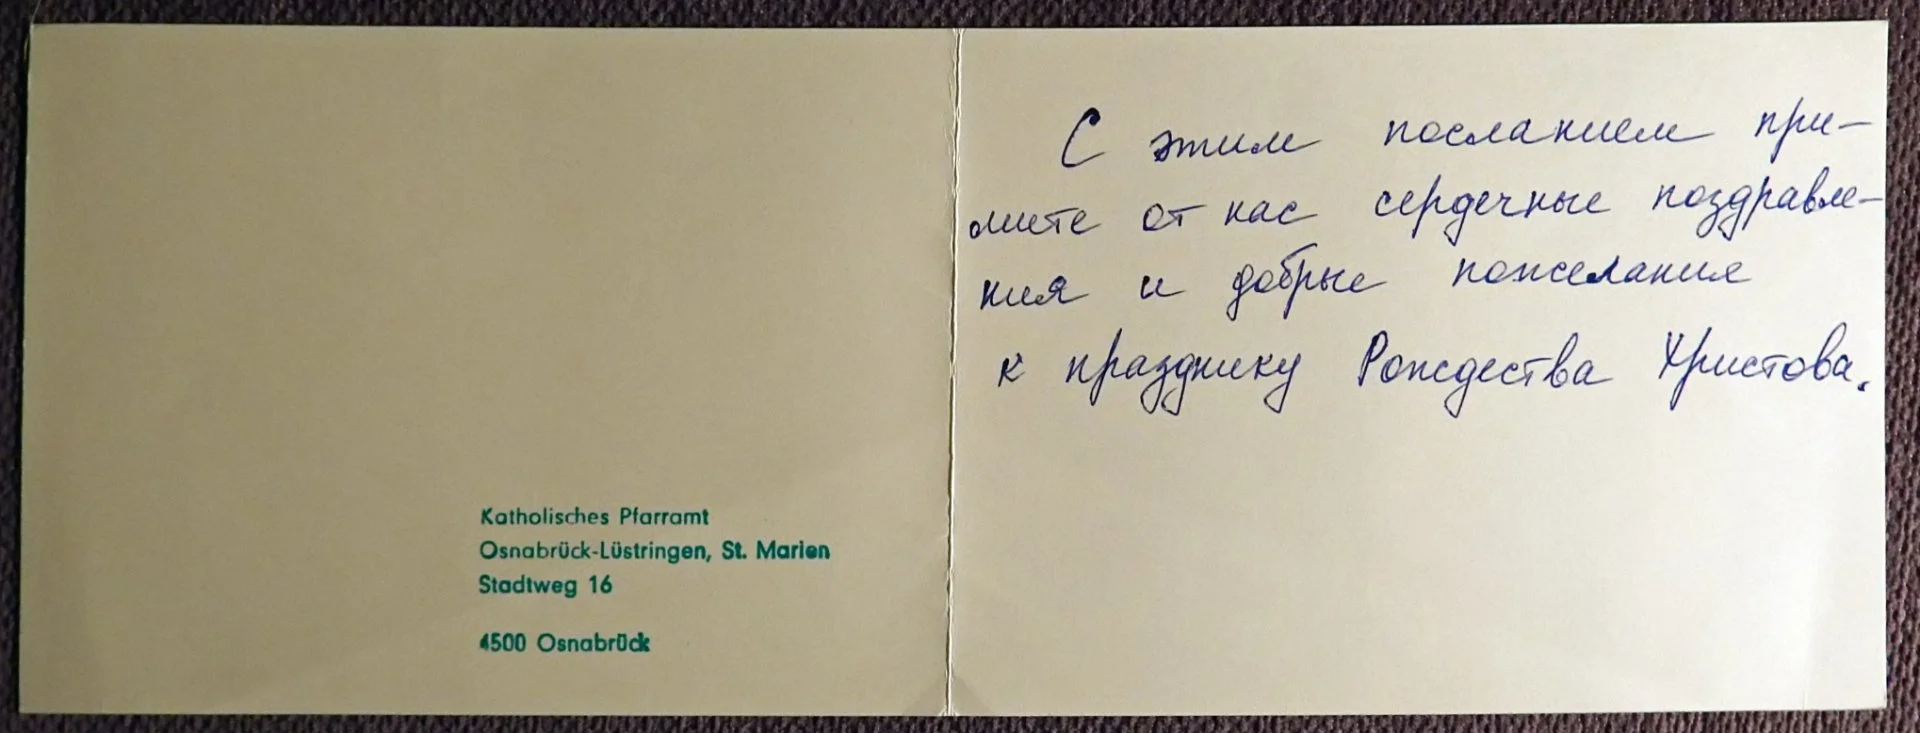 Katholisches Pfarramt
Osnabrück-Lüstringen, St. Marien
Stadtweg 16
4500 Osnabrück
С этим посланием при-
мите от нас сердечные поздравле-
ния и добрые пожелания
к празднику Рождества Христова.